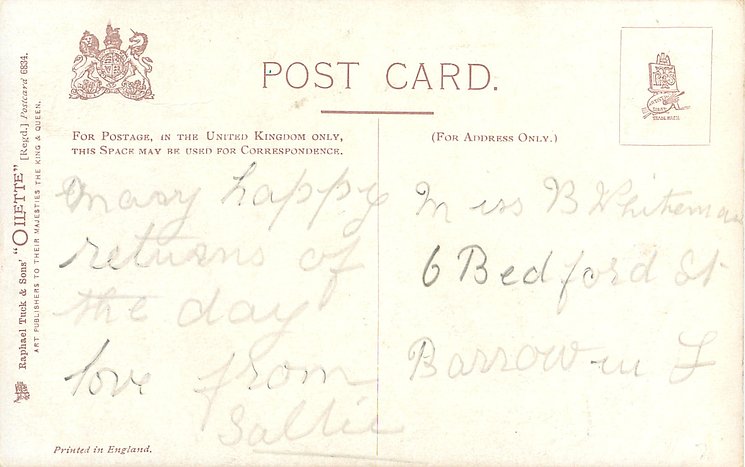 POST CARD.
FOR POSTAGE, IN THE UNITED KINGDOM ONLY,
THIS SPACE MAY BE USED FOR CORRESPONDENCE.
(FOR ADDRESS ONLY.)
Raphael Tuck & Sons' "OILETTE" [Regd.] Postcard 6834.
ART PUBLISHERS TO THEIR MAJESTIES THE KING & QUEEN.
Many happy
returns of
the day
love from
Sallie
Miss B Whiteman
6 Bedford St
Barrow in F
Printed in England.